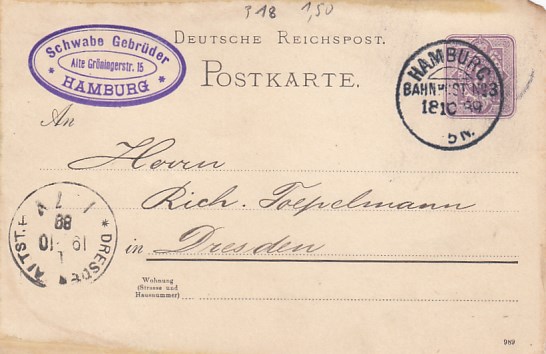 318 1,50
Schwabe Gebrüder
Alte Gröningerstr. 15
* HAMBURG *
DEUTSCHE REICHSPOST.
POSTKARTE.
HAMBURG.
BAHNH. ST. No 3
18 10 89
5 N.
An
Herrn
Rich. Toepelmann
in Dresden
DRESDEN ALTST.
19 10
89
Wohnung
(Strasse und
Hausnummer)
989